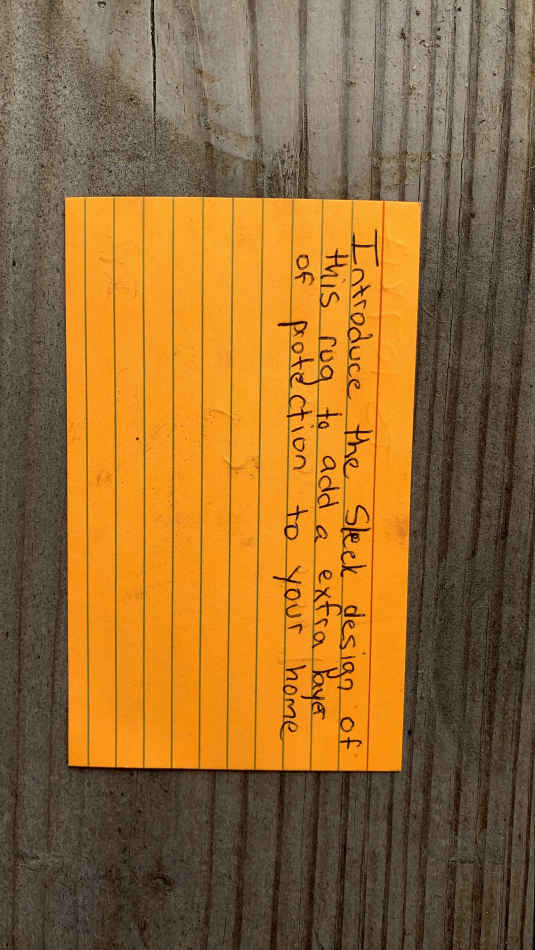 Introduce the Sleek design of
this rug to add a extra layer
of protection to your home